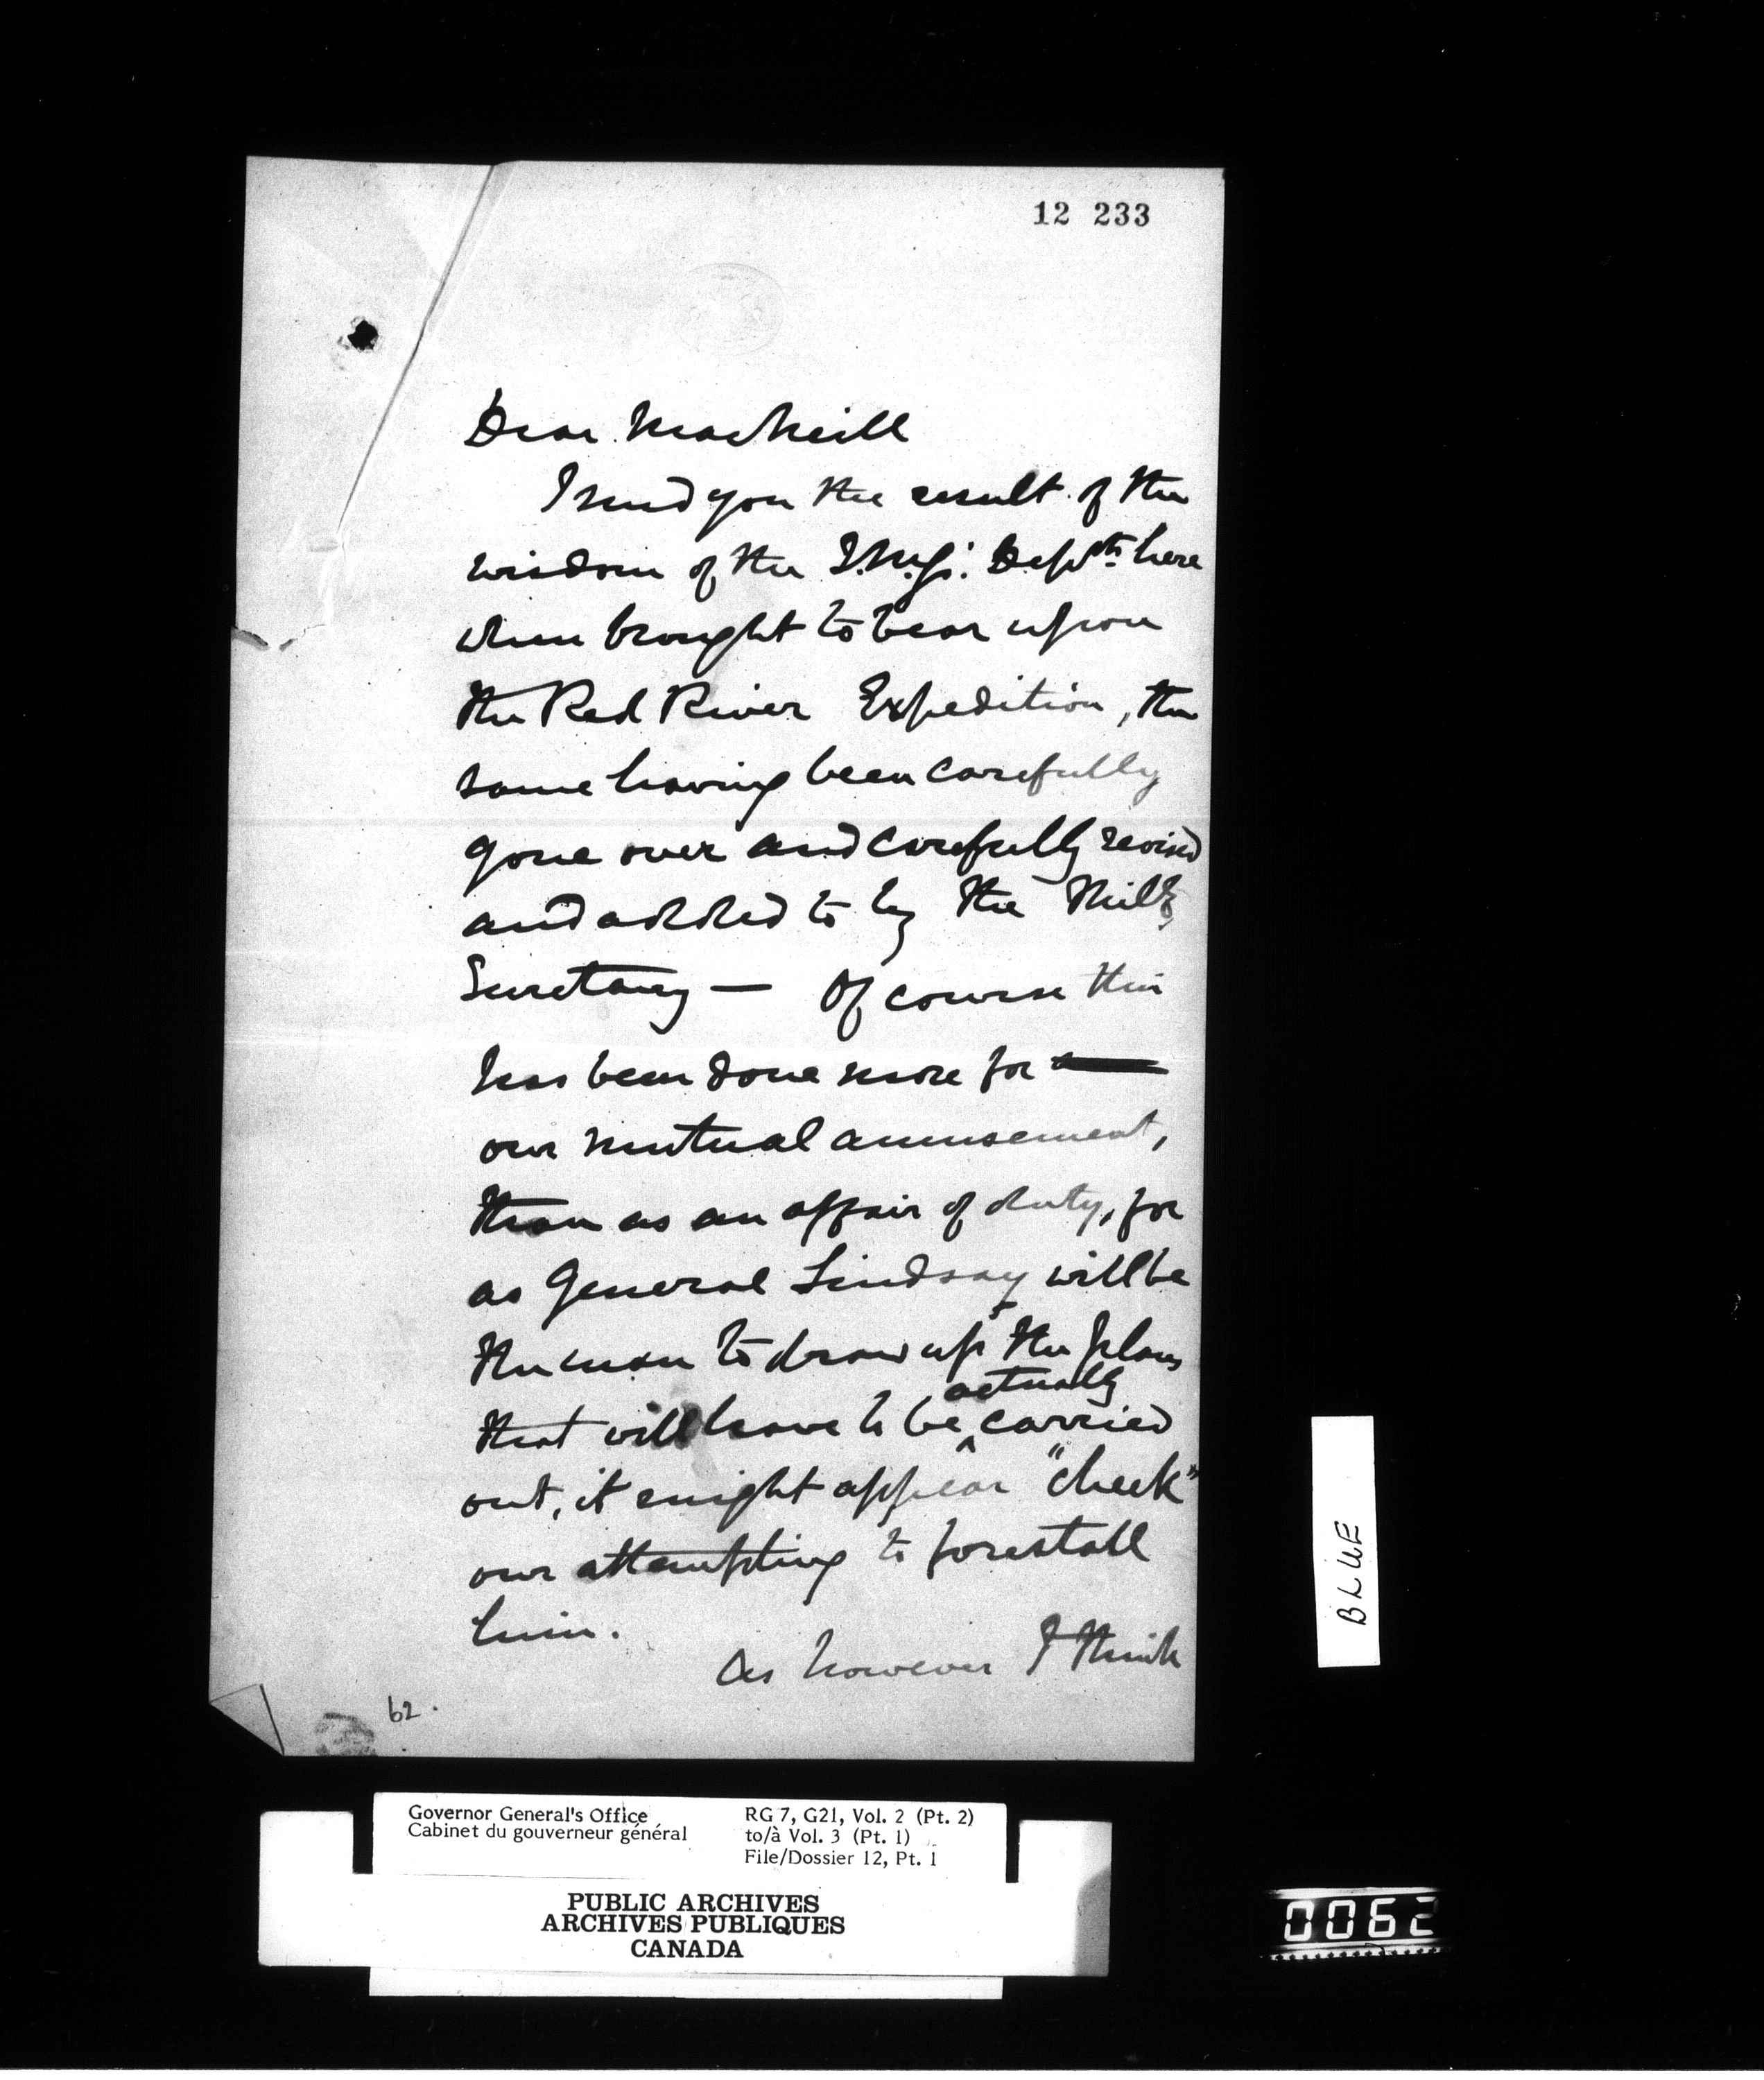 12 233
Dear MacNeill
I send you the result of the
wisdom of the Q.M.G's. Dept. here
when brought to bear upon
the Red River Expedition, the
same having been carefully
gone over and carefully revised
and added to by the Mily
Secretary — Of course this
has been done more for
our mutual amusement,
than as an affair of duty, for
as General Lindsay will be
the man to draw up the plans
actually
that will have to be carried
out, it might appear "cheek"
our attempting to forestall
him.
As however I think
62.
BLUE
Governor General's Office
Cabinet du gouverneur général
RG 7, G21, Vol. 2 (Pt. 2)
to/à Vol. 3 (Pt. 1)
File/Dossier 12, Pt. 1
PUBLIC ARCHIVES
ARCHIVES PUBLIQUES
CANADA
0062